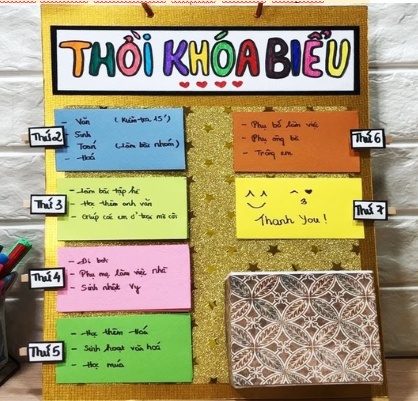 THỜI KHÓA BIỂU
Thứ 2
- Văn (Kiểm tra 15')
- Sinh
- Toán (Làm bài nhóm)
- Hoá
Thứ 3
- Làm bài tập hè
- Học thêm anh văn
- Giúp các em ở trại mồ côi
Thứ 4
- Đi bơi
- Phụ mẹ làm việc nhà
- Sinh nhật Vy
Thứ 5
- Học thêm Hoá
- Sinh hoạt văn hoá
- Học múa
Thứ 6
- Phụ bố làm việc
- Phụ ông bà
- Trông em
Thứ 7
Thank You!